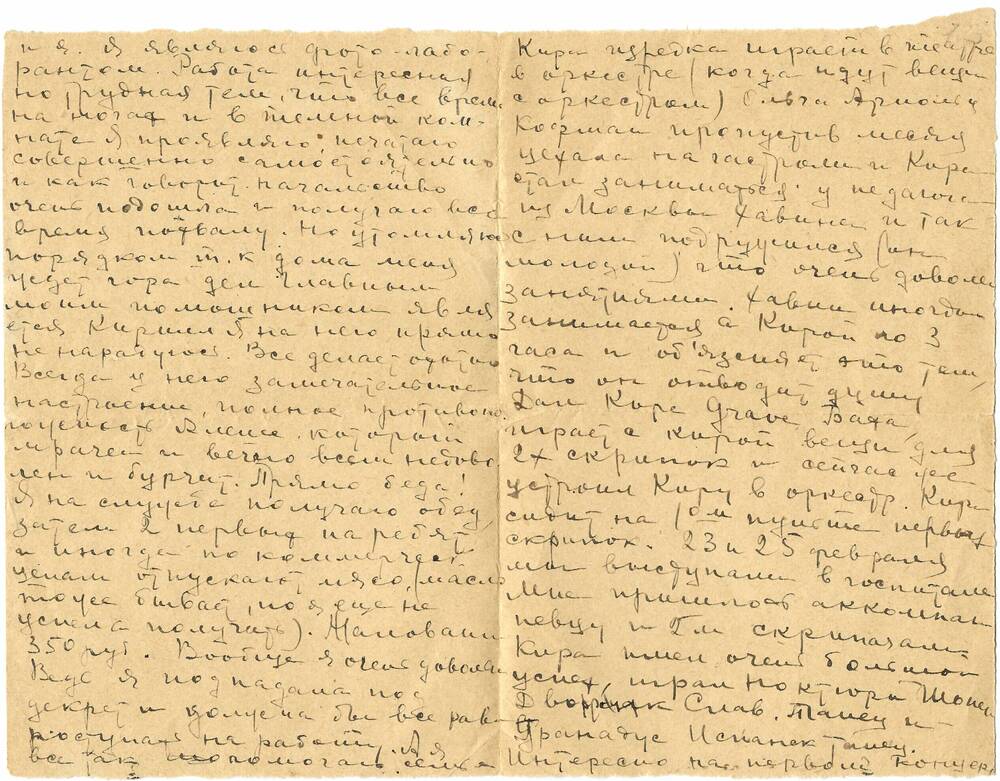 и я. Я являюсь фото-лабо-
рантом. Работа интересная
но трудная тем, что все время
на ногах и в темной ком-
нате. Я проявляю, печатаю
совершенно самостоятельно
и как говорит начальство
очень подошла и получаю все
время похвалу. Но утомляюсь
порядком т.к дома меня
ждет гора дел. Главным
моим помощником явля
ется Кирилл. Я на него прямо
не нарадуюсь. Все делает охотно
Всегда у него замечательное
настроение, полное противопо
ложность Алеше, который
мрачен и вечно всем недово
лен и бурчит. Прямо беда!
Я на службе получаю обед,
затем 2 первых на ребят
и иногда по коммерческ
ценам отпускают мясо (масло
тоже бывает, но я еще не
успела получать). Жалованье
350 руб. Вообще я очень довольна
Ведь я подпадала под
декрет и должна бы все равно
поступать на работу. А я
все так
Кира изредка играет в театре
в оркестре (когда идут вещи
с оркестром) Ольга Арнольд
Кофман пропустив месяц
уехала на гастроли и Кира
стал заниматься у педагога
из Москвы Хавина и так
с ним подружился (он
молодой) что очень доволен
занятиями. Хавин иногда
занимается с Кирой по 3
часа и об'ясняет это тем,
что он отводит душу
Дал Кире Grave Баха,
играет с Кирой вещи для
2х скрипок и сейчас уже
устроил Киру в оркестр. Кира
сидит на 1ом пульте первых
скрипок. 23 и 25 февраля
мы выступали в госпитале
Мне пришлось аккомпан
певцу и 2м скрипачам
Кира имел очень большой
успех, играл Ноктюрн Шопен
Дворжак Слав. Танец и
Гранадус Испанск танец.
Интересно на первом концер